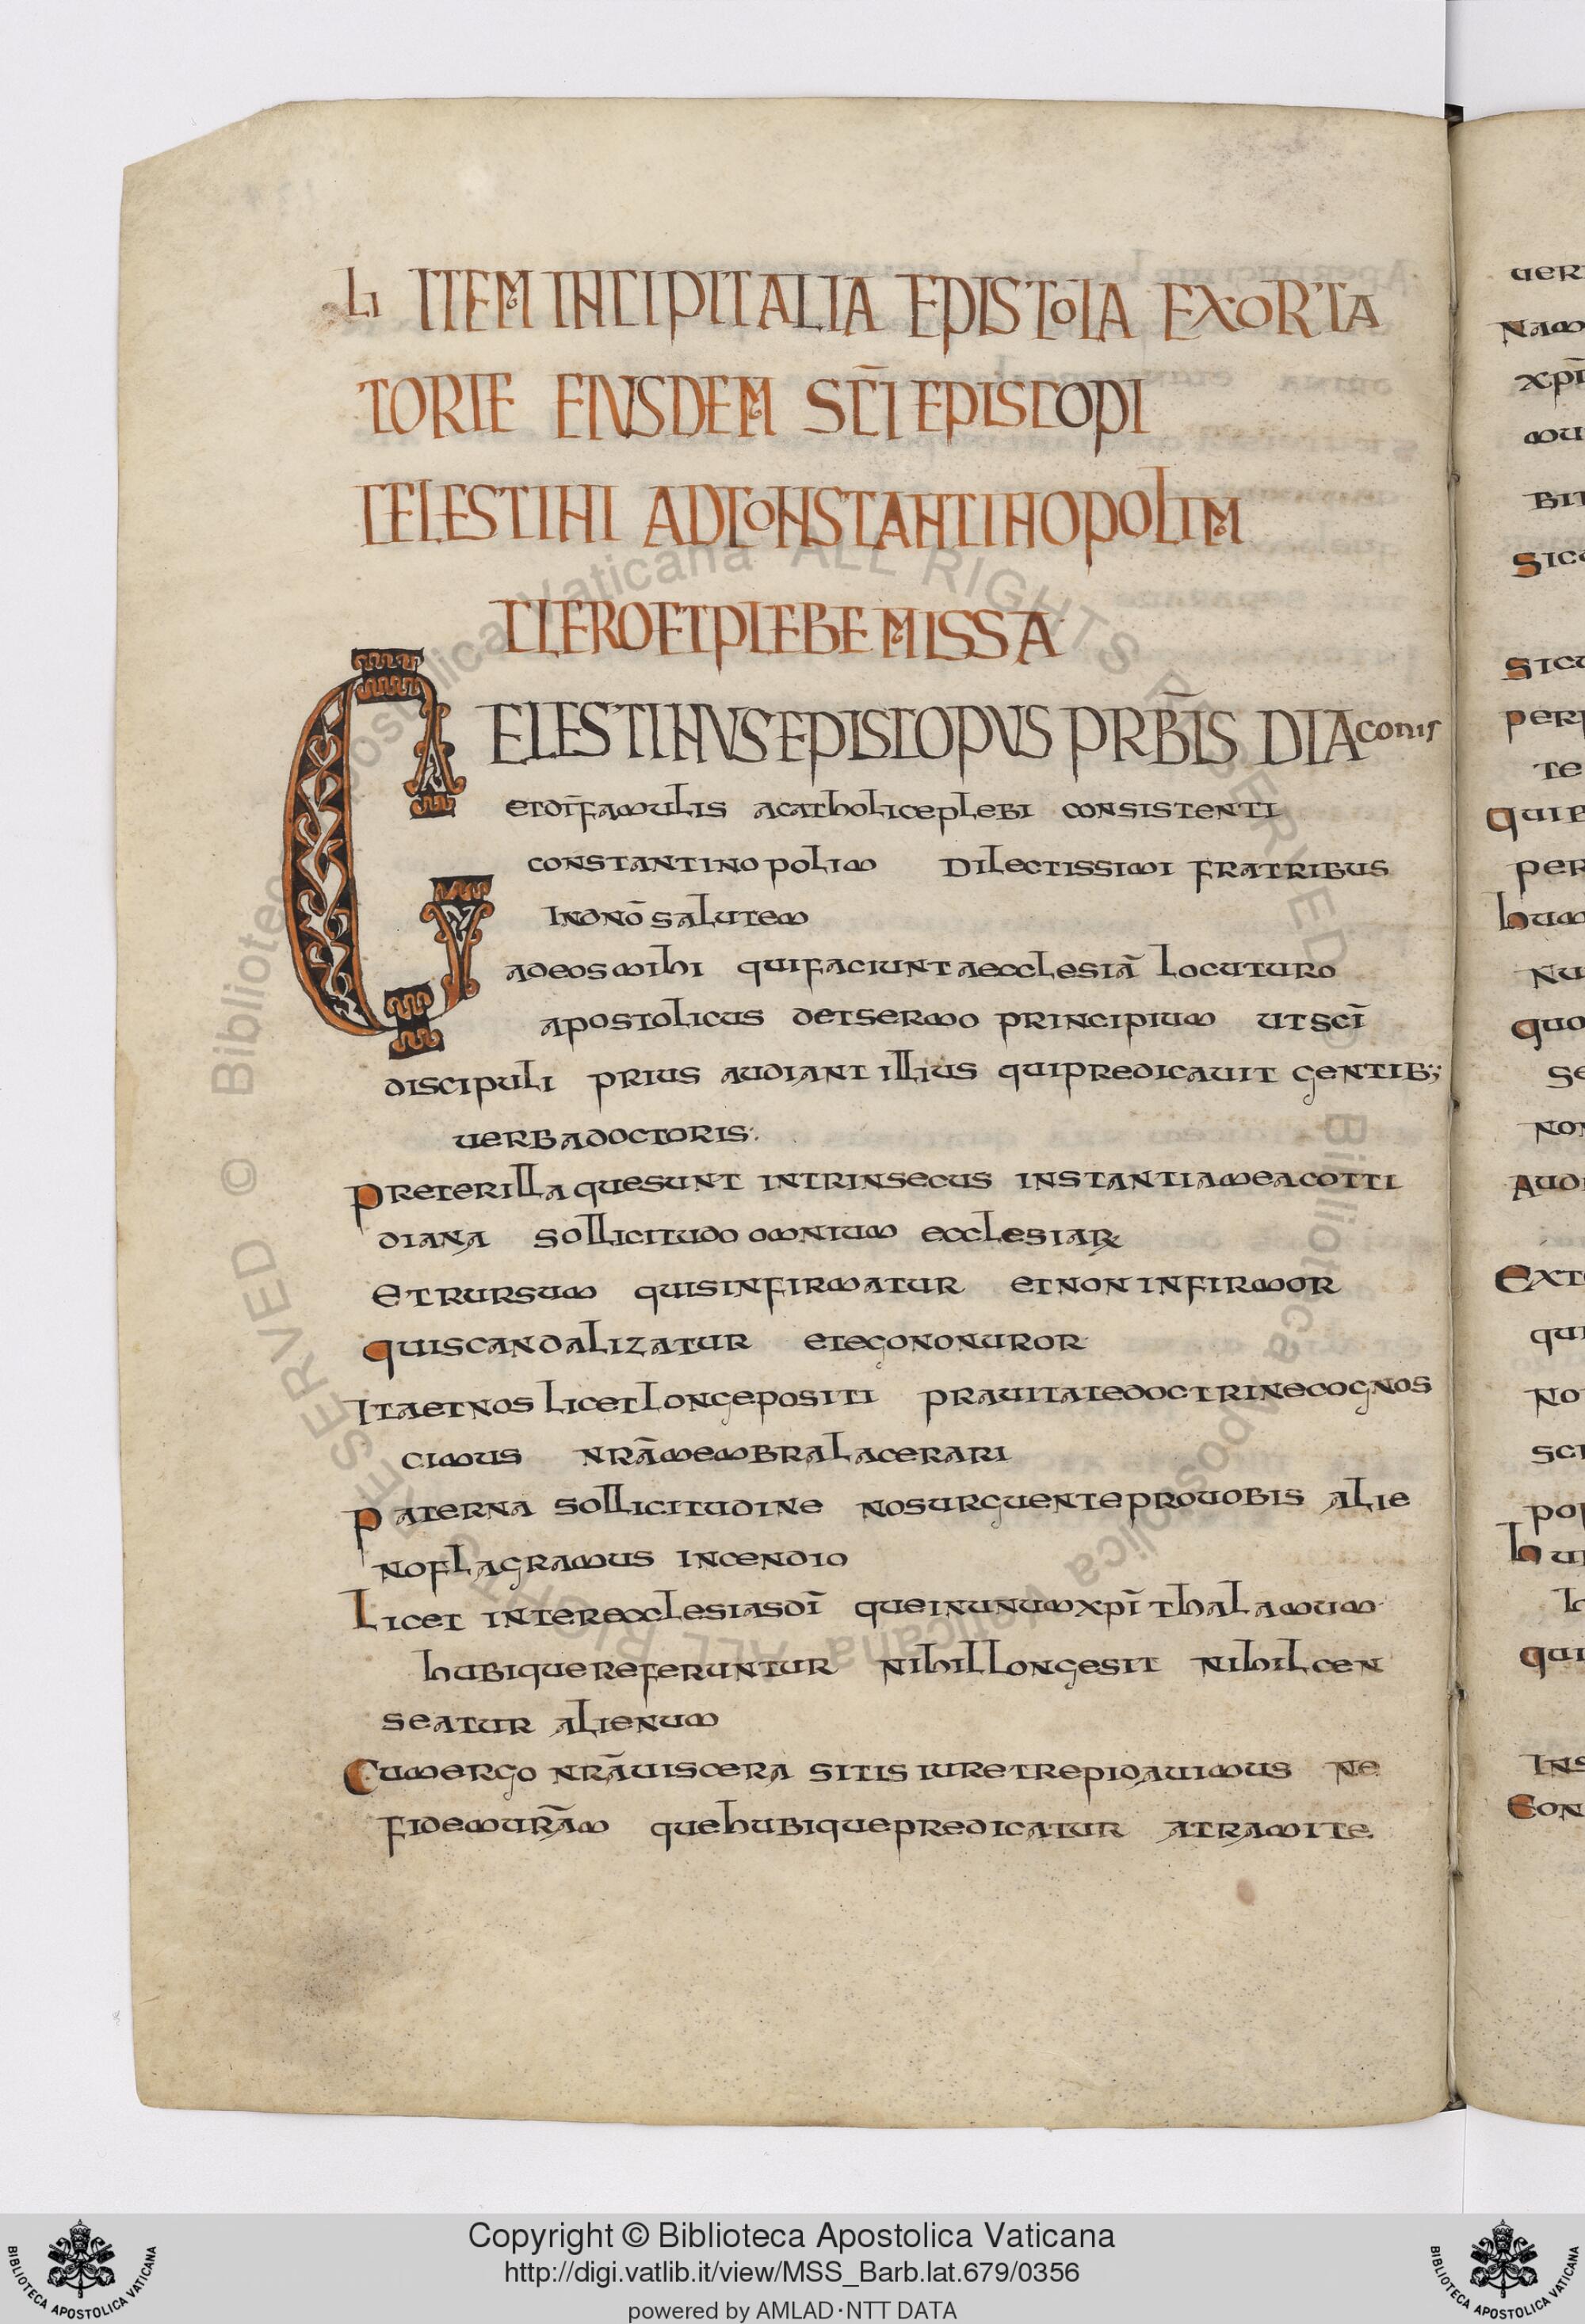 LI ITEM INCIPIT ALIA EPISTOLA EXORTA
TORIE EIUSDEM SC̄I EPISCOPI
CELESTINI AD CONSTANTINOPOLIM
CLERO ET PLEBE MISSA
CELESTINUS EPISCOPUS PRB̄IS DIAconis
et dī famulis a catholice plebi consistenti
constantinopolim dilectissimi fratribus
in dnō salutem
ad eos mihi qui faciunt aecclesiā locuturo
apostolicus det sermo principium ut scī
discipuli prius audiant illius qui predicavit gentib;
verba doctoris.
preter illa que sunt intrinsecus instantia mea cotti
diana sollicitudo omnium ecclesiaꝝ
et rursum quis infirmatur et non infirmor
quis candalizatur et ego non uror
Ita et nos licet longe positi pravitate doctrine cognos
cimus nrā membra lacerari
paterna sollicitudine nos urguente pro vobis alie
no flagramus incendio
Licet inter ecclesias dī que in unum xpī thalamum
hubique referuntur nihil longe sit nihil cen
seatur alienum
Cum ergo nrā viscera sitis iure trepidavimus ne
fidem urām que hubique predicatur a tramite
uer
nam
xpī
mu
bit
sicu
sicu
per
te
quib
per
hum
nu
quo
se
non
Audi
Ext
qui
no
sci
pop
hu
h
qui
ins
Eon
Copyright © Biblioteca Apostolica Vaticana
http://digi.vatlib.it/view/MSS_Barb.lat.679/0356
powered by AMLAD·NTT DATA
BIBLIOTECA APOSTOLICA VATICANA
BIBLIOTECA APOSTOLICA VATICANA
© Biblioteca Apostolica Vaticana ALL RIGHTS RESERVED
© Biblioteca Apostolica Vaticana ALL RIGHTS RESERVED